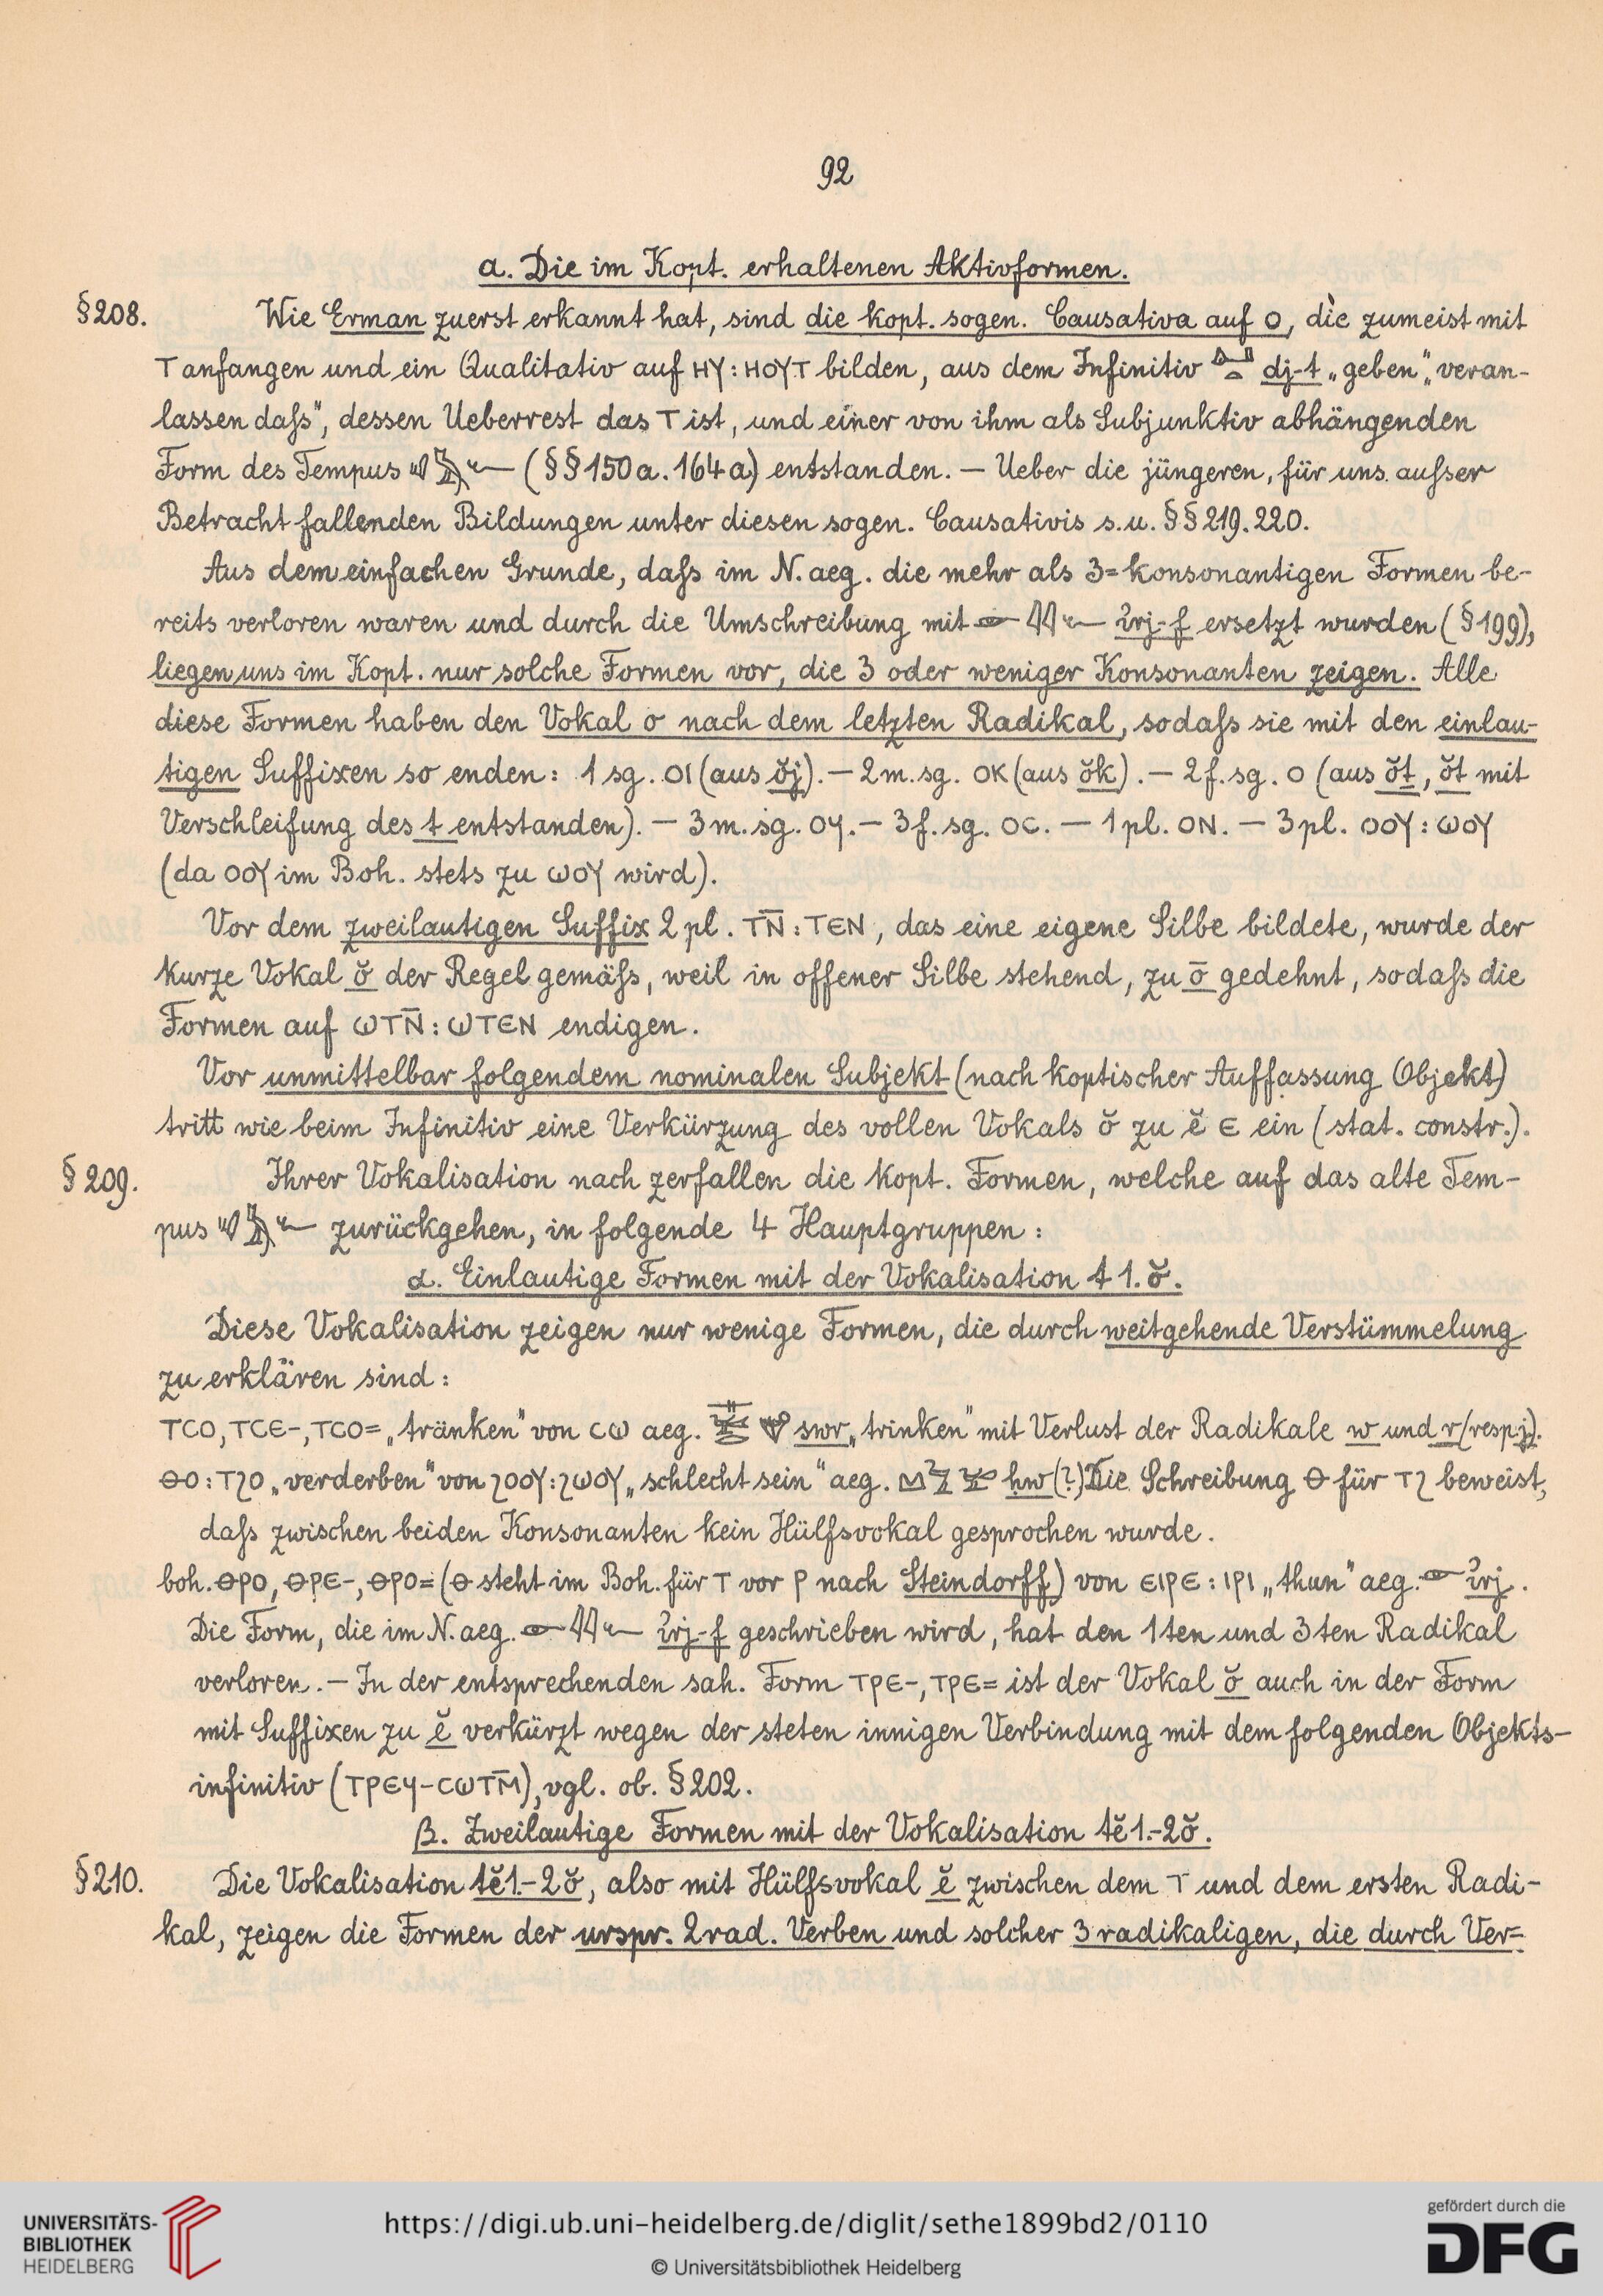 92
a. Die im Kopt. erhaltenen Aktivformen.
§208. Wie Erman zuerst erkannt hat, sind die kopt. sogen. Causativa auf ⲟ, die zumeist mit
ⲧ anfangen und ein Qualitativ auf ⲏⲩ : ⲏⲟⲩⲧ bilden, aus dem Infinitiv dj-t „geben“, „veran-
lassen daſs“, dessen Ueberrest das ⲧ ist, und einer von ihm als Subjunktiv abhängenden
Form des Tempus (§§150a. 164a) entstanden. – Ueber die jüngeren, für uns auſser
Betracht fallenden Bildungen unter diesen sogen. Causativis s. u. §§219. 220.
Aus dem einfachen Grunde, daſs im N. aeg. die mehr als 3=konsonantigen Formen be-
reits verloren waren und durch die Umschreibung mit 𓁹 𓇋𓇋 𓆑 ꞽrj-f ersetzt wurden (§199),
liegen uns im Kopt. nur solche Formen vor, die 3 oder weniger Konsonanten zeigen. Alle
diese Formen haben den Vokal o nach dem letzten Radikal, sodaſs sie mit den einlau-
tigen Suffixen so enden: 1 sg. ⲟⲓ (aus ŏj). – 2 m. sg. ⲟⲕ (aus ŏk). – 2 f. sg. ⲟ (aus ŏṯ, ŏt mit
Verschleifung des t entstanden). – 3 m. sg. ⲟϥ. – 3 f. sg. ⲟⲥ. – 1 pl. ⲟⲛ. – 3 pl. ⲟⲟⲩ : ⲱⲟⲩ
(da ⲟⲟⲩ im Boh. stets zu ⲱⲟⲩ wird).
Vor dem zweilautigen Suffix 2 pl. ⲧⲛ̄ : ⲧⲉⲛ, das eine eigene Silbe bildete, wurde der
kurze Vokal ŏ der Regel gemäſs, weil in offener Silbe stehend, zu ō gedehnt, sodaſs die
Formen auf ⲱⲧⲛ̄ : ⲱⲧⲉⲛ endigen.
Vor unmittelbar folgendem nominalen Subjekt (nach koptischer Auffassung Objekt)
tritt wie beim Infinitiv eine Verkürzung des vollen Vokals ŏ zu ĕ ⲉ ein (stat. constr.).
§209. Ihrer Vokalisation nach zerfallen die kopt. Formen, welche auf das alte Tem-
pus zurückgehen, in folgende 4 Hauptgruppen:
α. Einlautige Formen mit der Vokalisation t 1. ŏ.
Diese Vokalisation zeigen nur wenige Formen, die durch weitgehende Verstümmelung
zu erklären sind:
ⲧⲥⲟ, ⲧⲥⲉ-, ⲧⲥⲟ= „tränken“ von ⲥⲱ aeg. swr „trinken“ mit Verlust der Radikale w und r (resp. j).
ⲑⲟ : ⲧϩⲟ „verderben“ von ϩⲟⲟⲩ : ϩⲱⲟⲩ „schlecht sein“ aeg. hw (?) Die Schreibung ⲑ für ⲧϩ beweist,
daſs zwischen beiden Konsonanten kein Hülfsvokal gesprochen wurde.
boh. ⲑⲣⲟ, ⲑⲣⲉ-, ⲑⲣⲟ= (ⲑ steht im Boh. für ⲧ vor ⲣ nach Steindorff) von ⲉⲓⲣⲉ : ⲓⲣⲓ „thun“ aeg. 𓁹 ꞽrj.
Die Form, die im N. aeg. 𓁹 𓇋𓇋 𓆑 ꞽrj-f geschrieben wird, hat den 1ten und 3ten Radikal
verloren. – In der entsprechenden sah. Form ⲧⲣⲉ-, ⲧⲣⲉ= ist der Vokal ŏ auch in der Form
mit Suffixen zu ĕ verkürzt wegen der steten innigen Verbindung mit dem folgenden Objekts-
infinitiv (ⲧⲣⲉϥ-ⲥⲱⲧⲙ̄), vgl. ob. §202.
β. Zweilautige Formen mit der Vokalisation tĕ1.-2ŏ.
§210. Die Vokalisation tĕ1.-2ŏ, also mit Hülfsvokal ĕ zwischen dem ⲧ und dem ersten Radi-
kal, zeigen die Formen der urspr. 2rad. Verben und solcher 3radikaligen, die durch Ver=
UNIVERSITÄTS-
BIBLIOTHEK
HEIDELBERG
https://digi.ub.uni-heidelberg.de/diglit/sethe1899bd2/0110
© Universitätsbibliothek Heidelberg
gefördert durch die
DFG